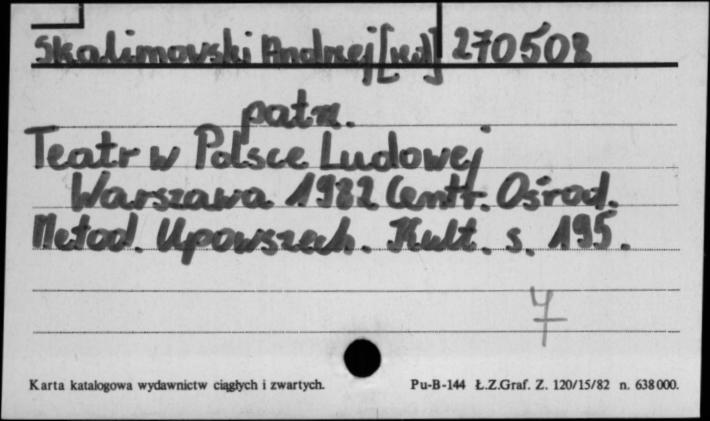 Skalimowski Andrzej [red] 270508
patrz.
Teatr w Polsce Ludowej
Warszawa 1982 Centr. Ośrod.
Metod. Upowszech. Kult. s. 195.
7
Karta katalogowa wydawnictw ciągłych i zwartych. Pu-B-144 Ł.Z.Graf. Z. 120/15/82 n. 638000.